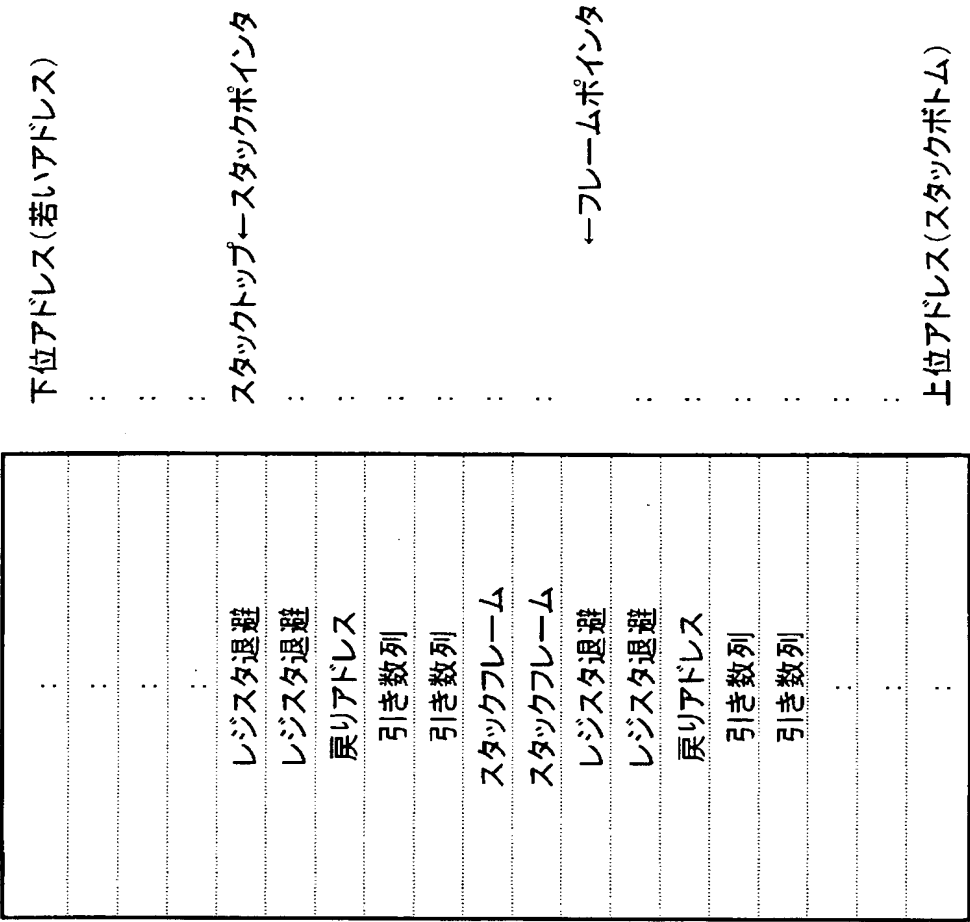 下位アドレス(若いアドレス)
レジスタ退避 スタックトップ←スタックポインタ
レジスタ退避
戻りアドレス
引き数列
引き数列
スタックフレーム
スタックフレーム
レジスタ退避 ←フレームポインタ
レジスタ退避
戻りアドレス
引き数列
引き数列
上位アドレス(スタックボトム)